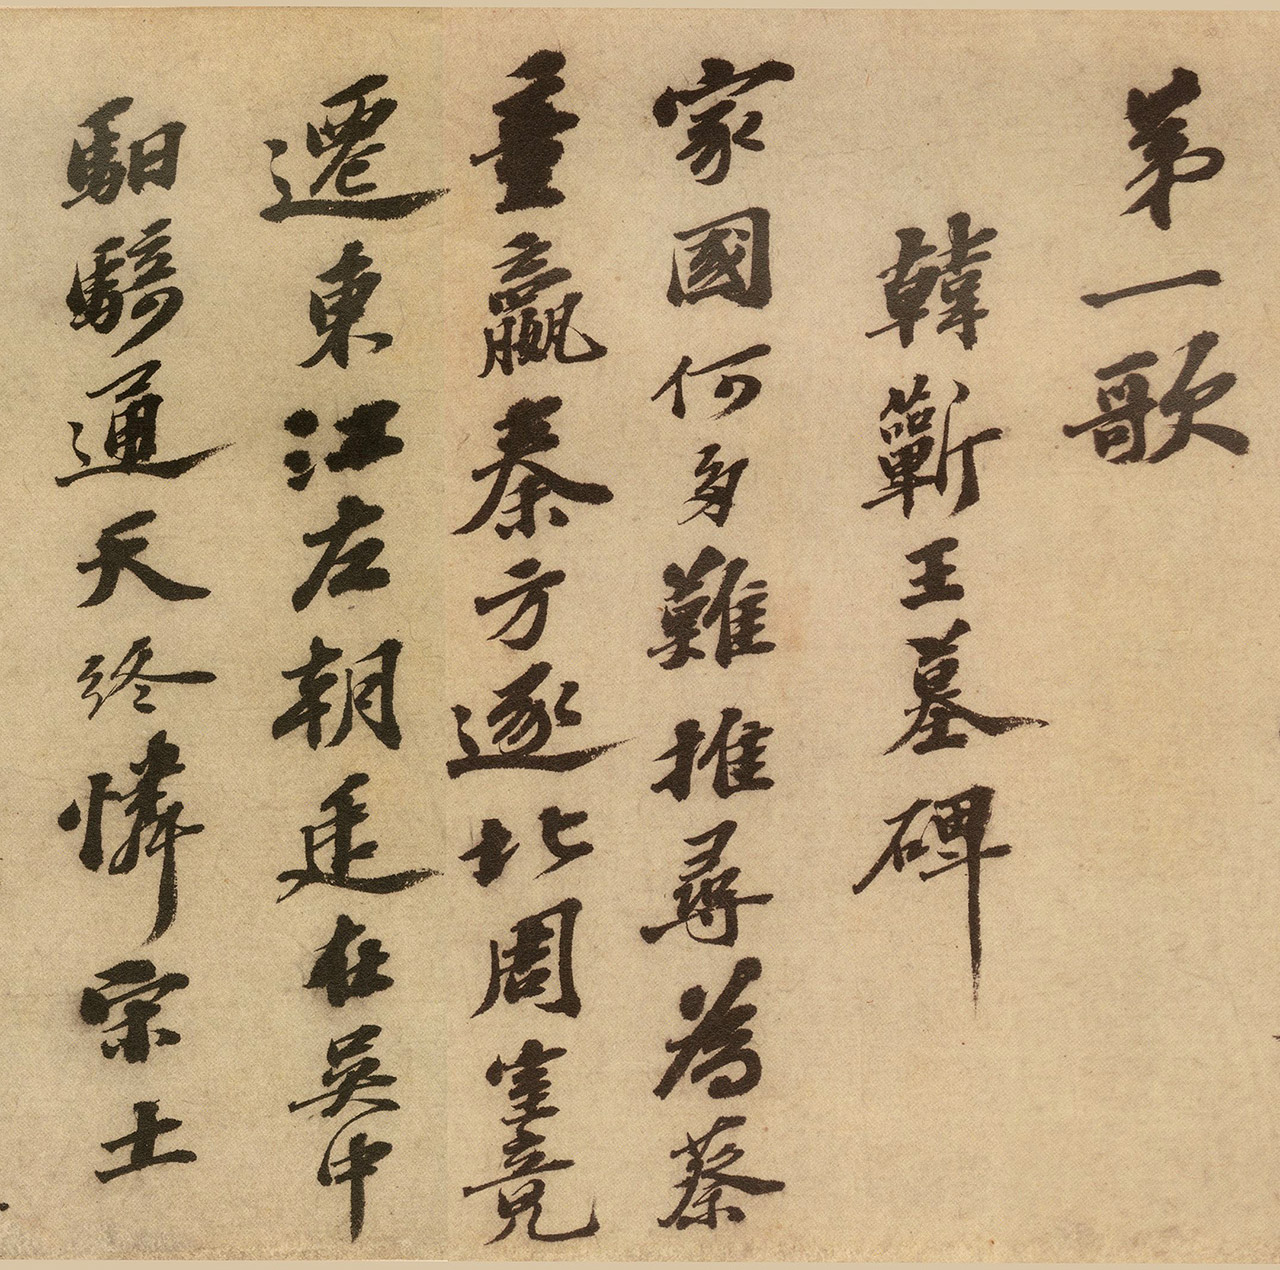 第一歌
韓蘄王墓碑
家國何多難推尋為蔡
童嬴秦方逐北周室竟
遷東江左朝廷在吳中
馹騎通天終憐宋土